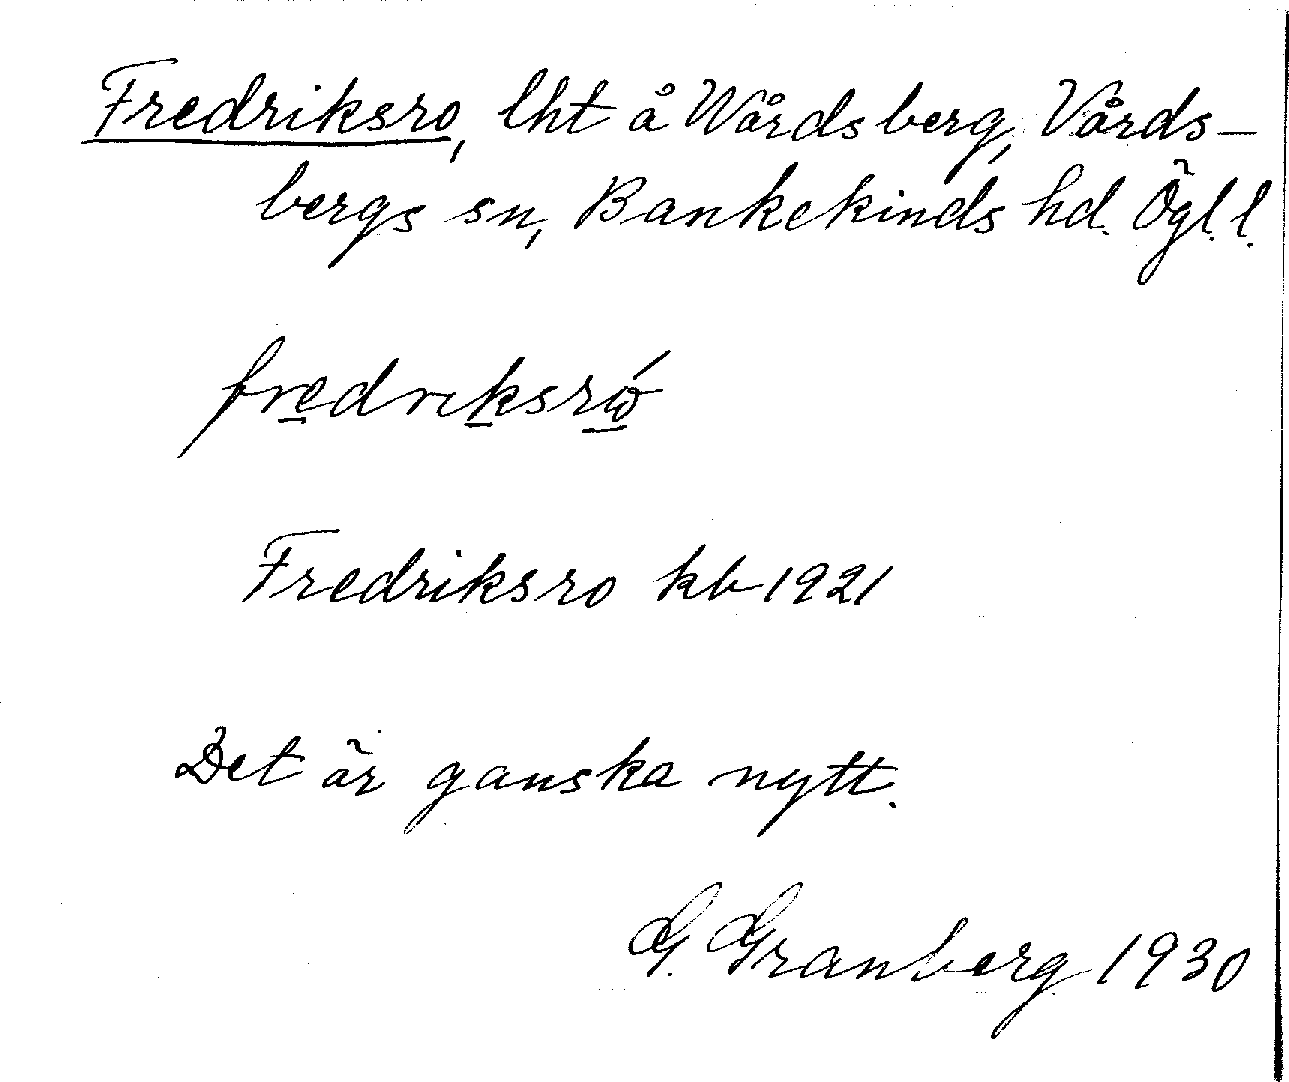 Fredriksro, lht å Wårdsberg, Vårds-
bergs sn, Bankekinds hd. Ögl. l.
fredriksrώ
Fredriksro kb 1921
Det är ganska nytt.
G. Granberg 1930